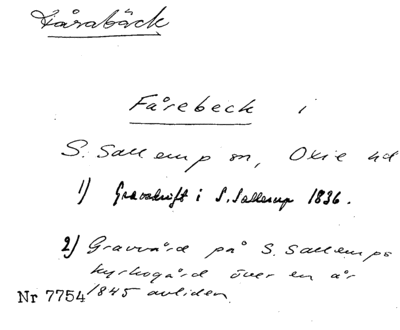 Fårabäck
Fårebeck i
S. Sallerup sn, Oxie hd
1) Gravskrift i S. Sallerup 1836.
2) Gravvård på S. Sallerups
kyrkogård över en år
Nr 7754 1845 avliden.